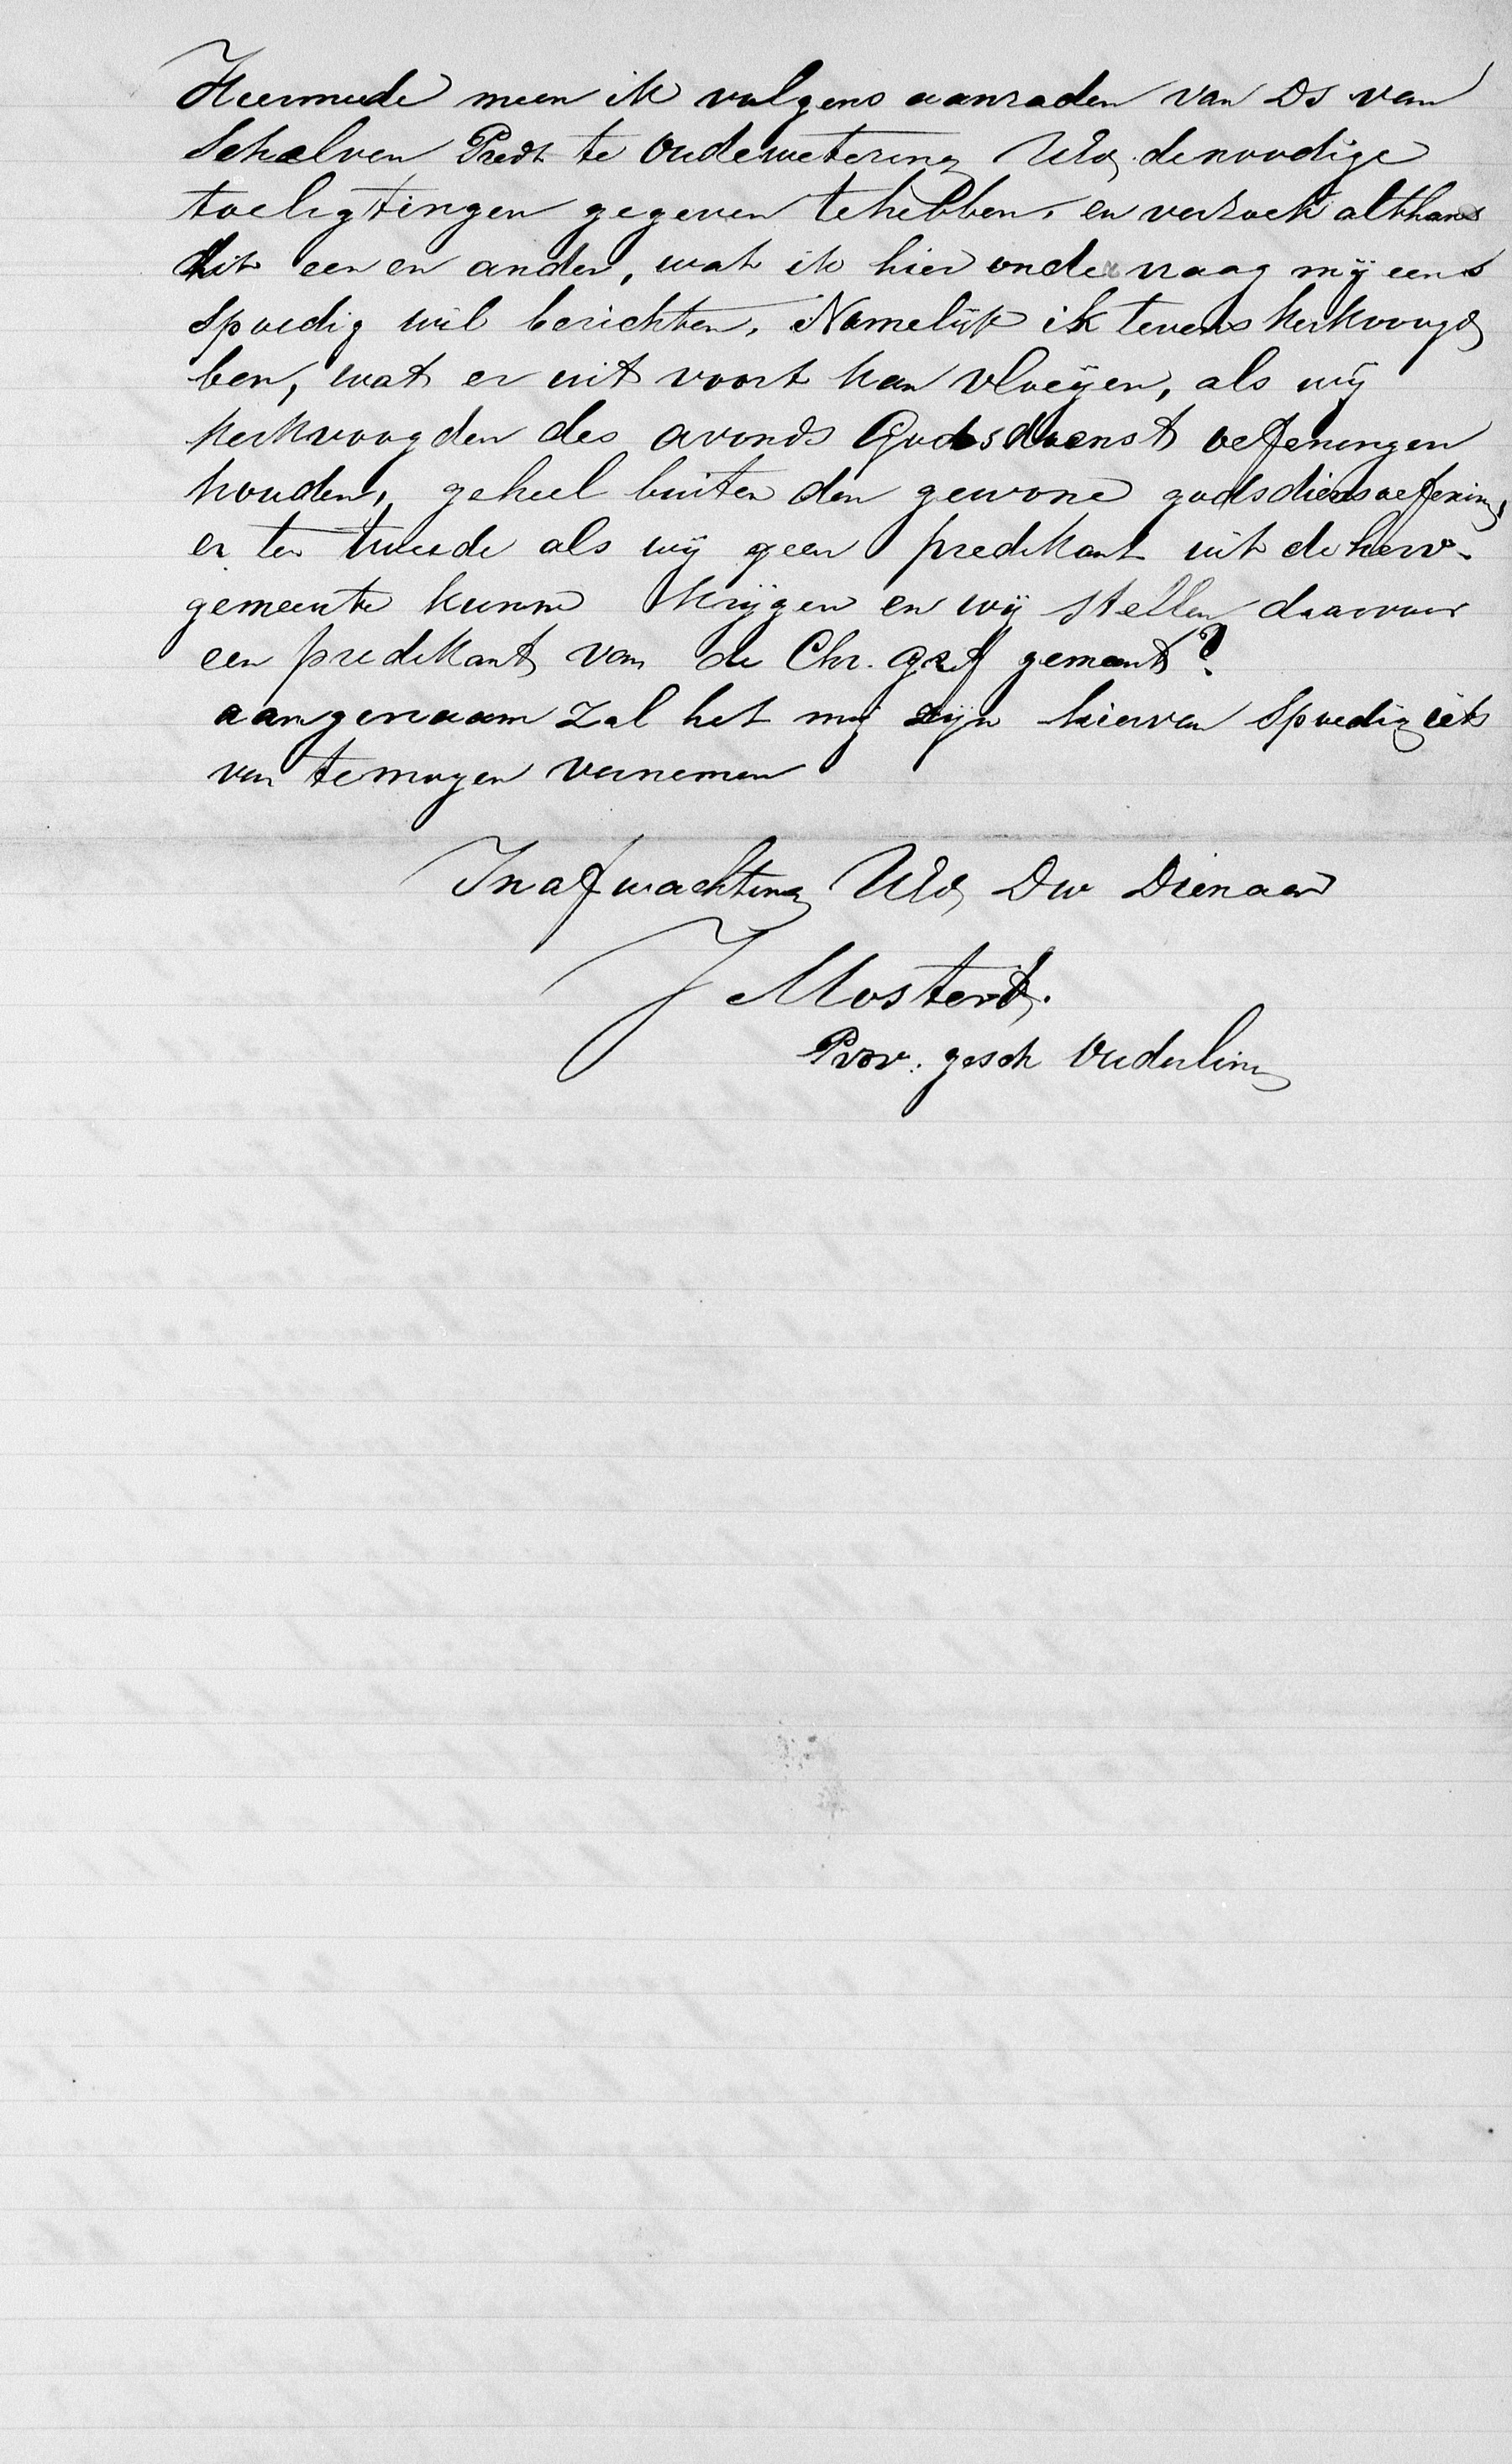 Hiermede meen ik volgens aanraden van Ds van
Schelven Predt te Oudewetering UEd. de noodige
toeligtingen gegeven te hebben, en verzoek althans
dit een en ander, wat ik hier onder vraag mij eens
spoedig wil berichten. Namelijk ik tevens kerkvoogd
ben, wat er uit voort kan vloeijen, als wij
kerkvoogden des avonds Godsdienst oefeningen
houden, geheel buiten den gewone godsdiensoefening,
en ten tweede als wij geen predikant uit de herv.
gemeente kunnen krijgen en wij stellen daarvoor
een predikant van de Chr. gref gemeent?
aangenaam zal het mij zijn hiervan spoedig iets
van te mogen vernemen
In afwachting UEd Dw Dienaar
J Mostert.
Prov. gesch Ouderling